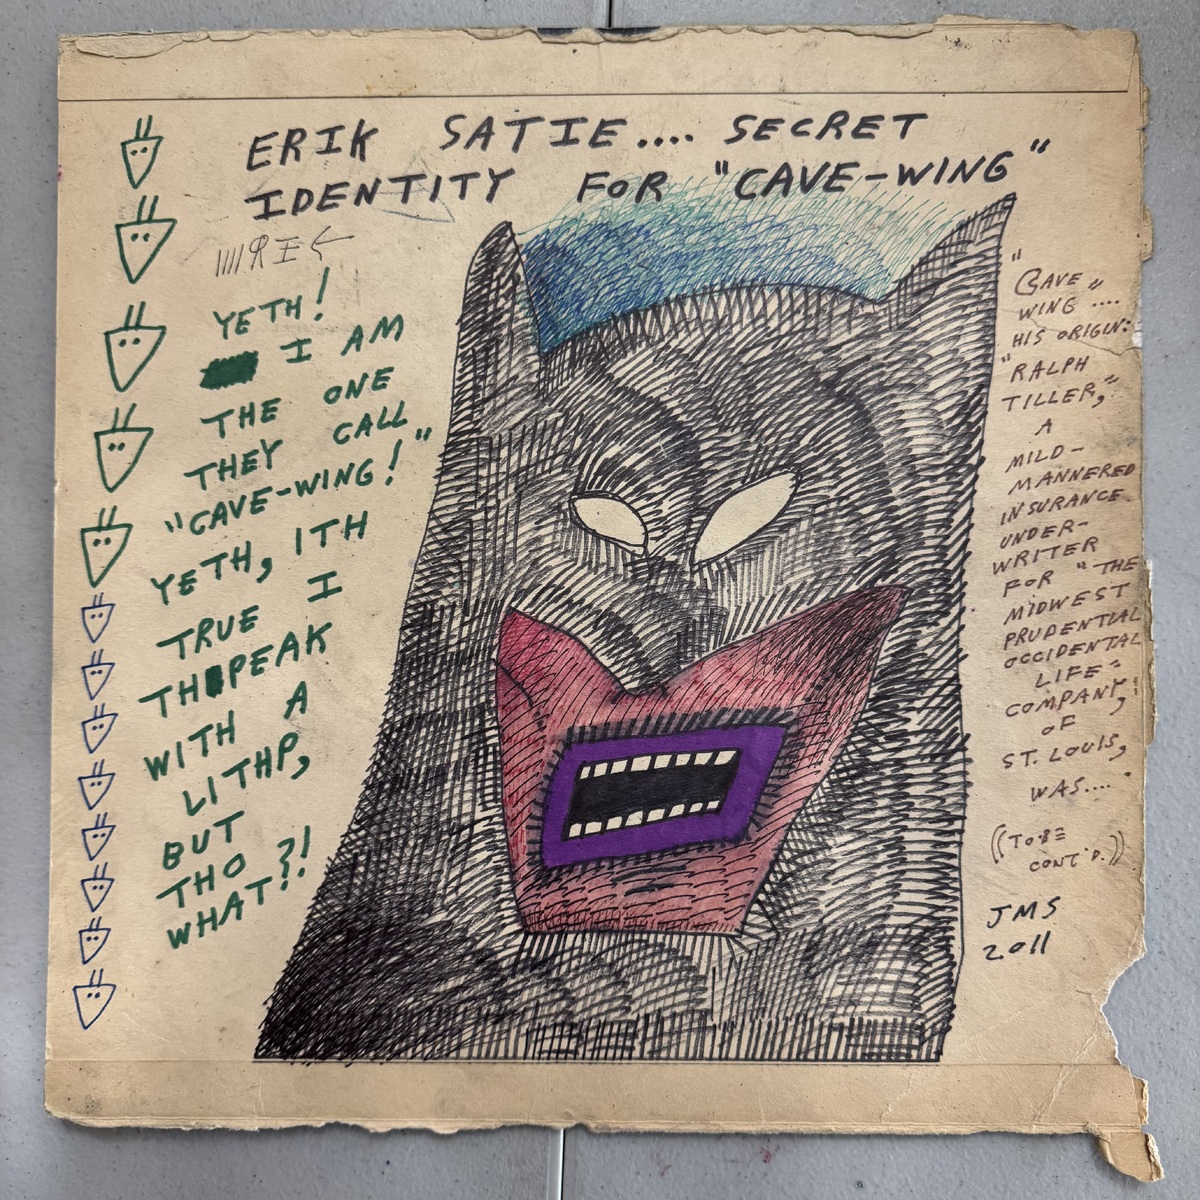 ERIK SATIE.... SECRET
IDENTITY FOR "CAVE-WING"
YETH!
I AM
THE ONE
THEY CALL
"CAVE-WING!"
YETH, ITH
TRUE I
THPEAK
WITH A
LITHP,
BUT
THO
WHAT?!
"CAVE
WING"....
HIS ORIGIN:
"RALPH
TILLER,"
A
MILD-
MANNERED
INSURANCE
UNDER-
WRITER
FOR "THE
MIDWEST
PRUDENTIAL
OCCIDENTAL
LIFE"
COMPANY,
OF
ST. LOUIS,
WAS....
((TO BE
CONT'D.))
JMS
2011